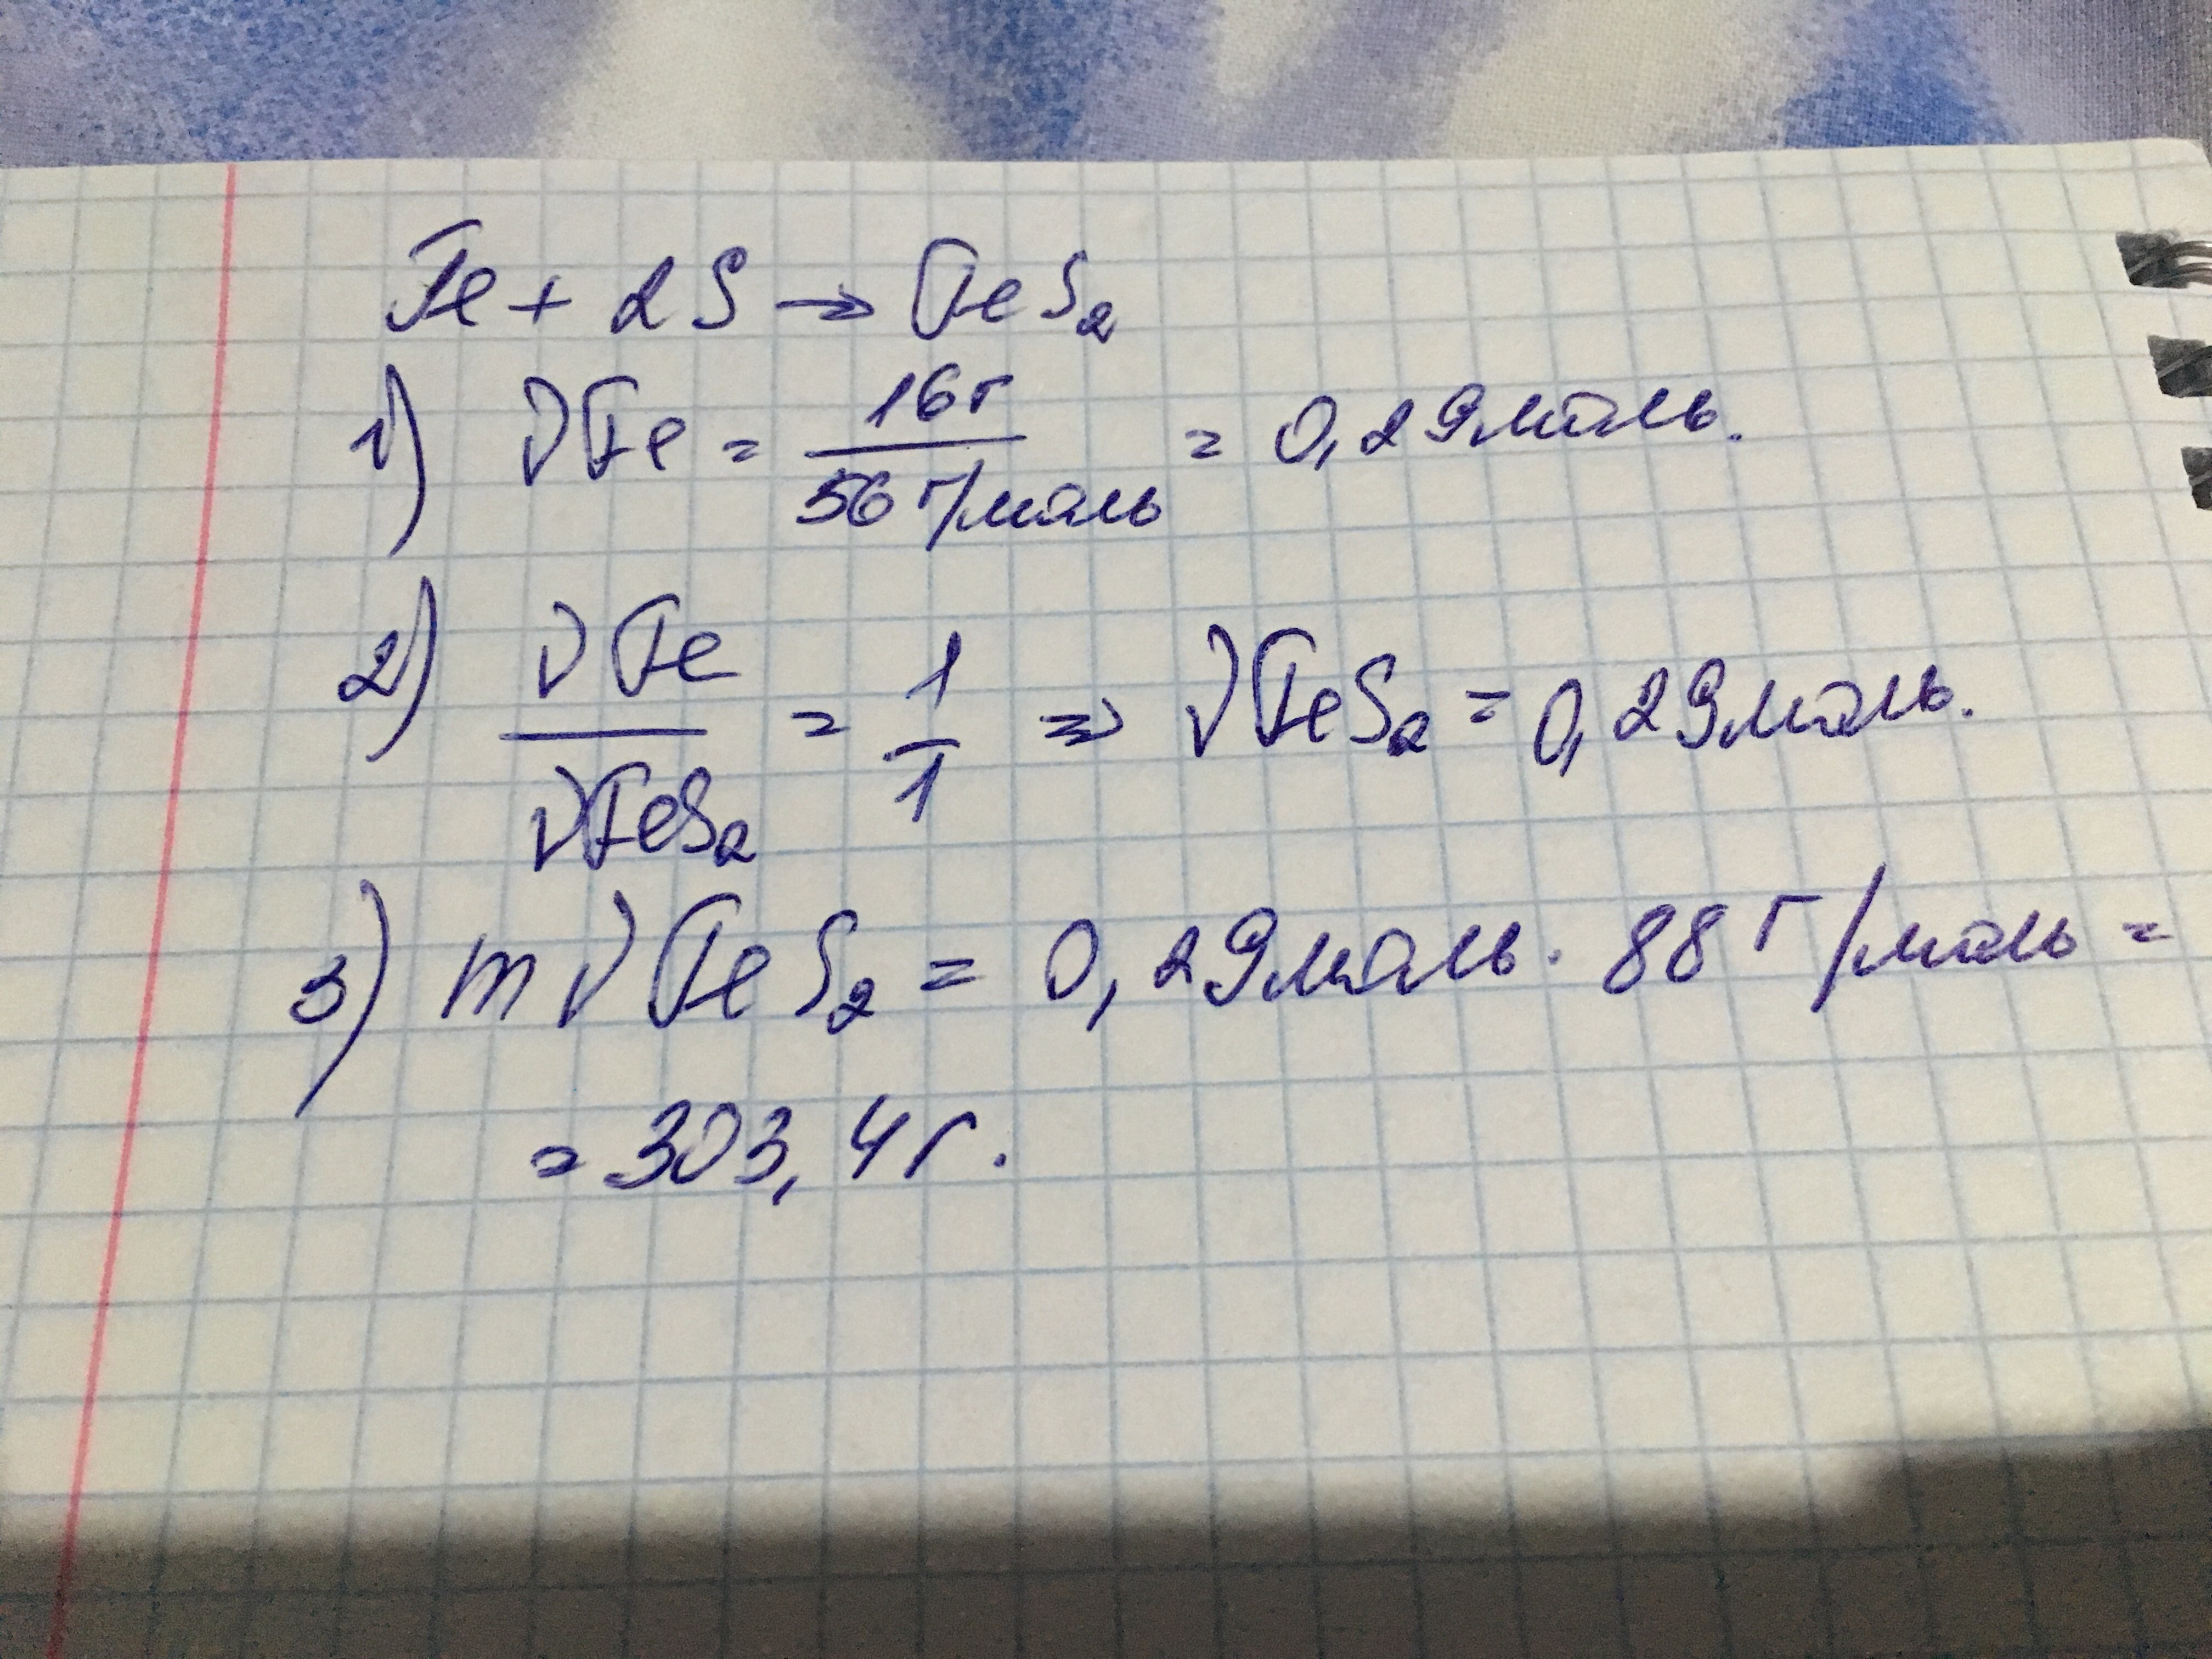 Fe + 2S → FeS₂
1) νFe = 16г / 56 г/моль = 0,29моль.
2) νFe / νFeS₂ = 1/1 => νFeS₂ = 0,29моль.
3) mνFeS₂ = 0,29моль · 88 г/моль =
= 303,4г.